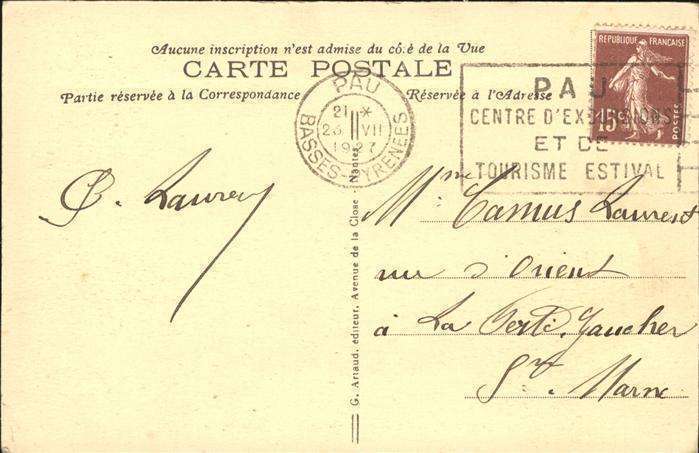 Aucune inscription n'est admise du côté de la Vue
CARTE POSTALE
Partie réservée à la Correspondance
Réservée à l'Adresse
PAU
21 *
23 VII
1927
BASSES-PYRENEES
PAU
CENTRE D'EXCURSIONS
ET DE
TOURISME ESTIVAL
REPUBLIQUE FRANÇAISE
15c
C. Laurent
Mme Camus Laurent
rue d'Orient
à La Ferté Gaucher
Sne Marne
G. Artaud, éditeur, Avenue de la Close Nantes